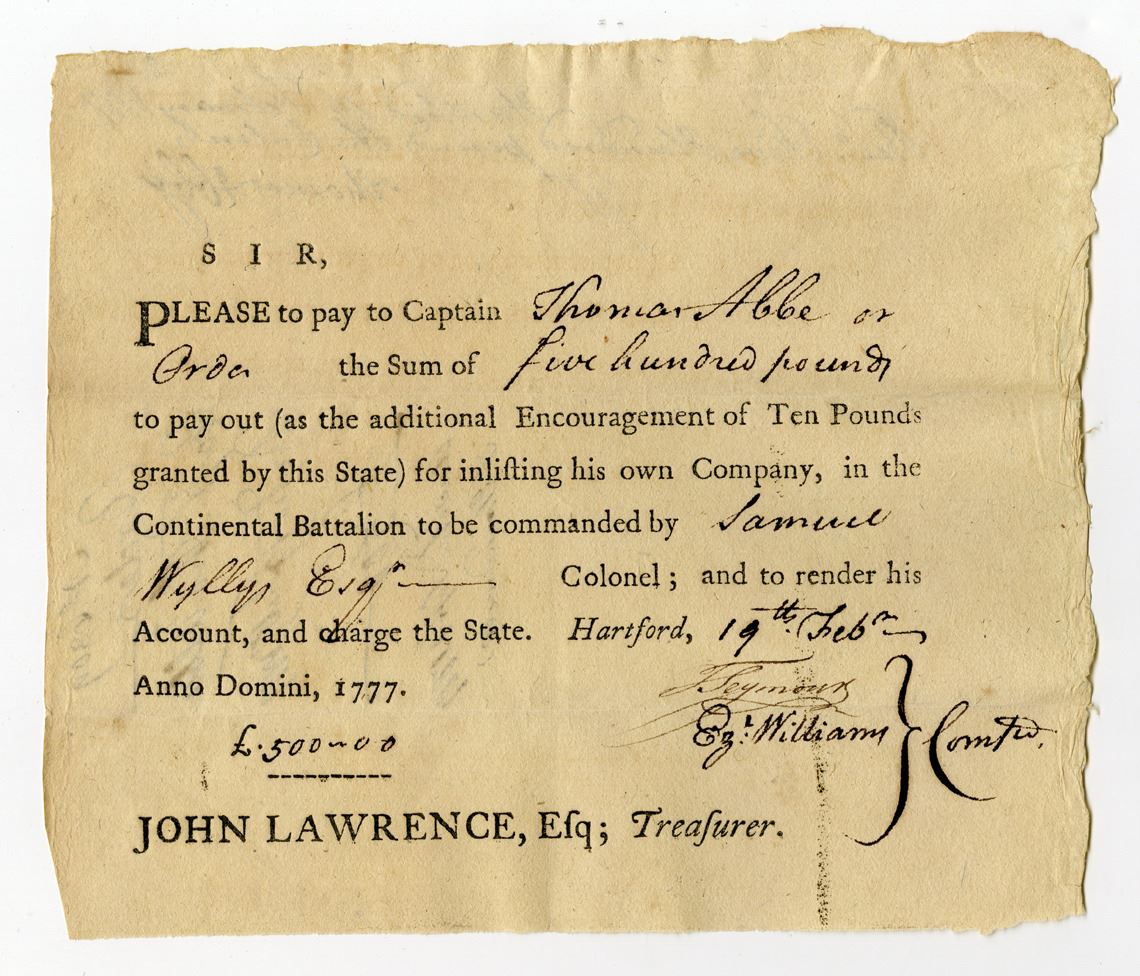 SIR,
PLEASE to pay to Captain Thomas Abbe or
Order the Sum of five hundred pounds
to pay out (as the additional Encouragement of Ten Pounds
granted by this State) for inliſting his own Company, in the
Continental Battalion to be commanded by Samuel
Wyllys Esqr Colonel; and to render his
Account, and charge the State. Hartford, 19th. Febr
Anno Domini, 1777.
T Seymour
Ezl. Williams } Comtee.
£.500-0-0
JOHN LAWRENCE, Eſq; Treaſurer.